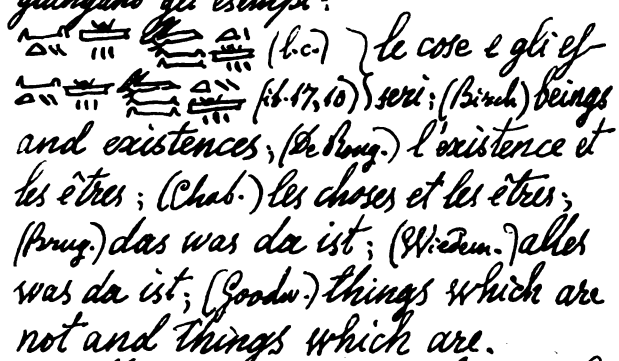 giungano gli esempi:
(l.c.) le cose e gli es-
(ib. 17, 10) seri; (Birch) beings
and existences; (De Roug.) l'existence et
les êtres; (Chab.) les choses et les êtres;
(Brug.) das was da ist; (Wiedem.) alles
was da ist; (Goodw.) things which are
not and things which are.